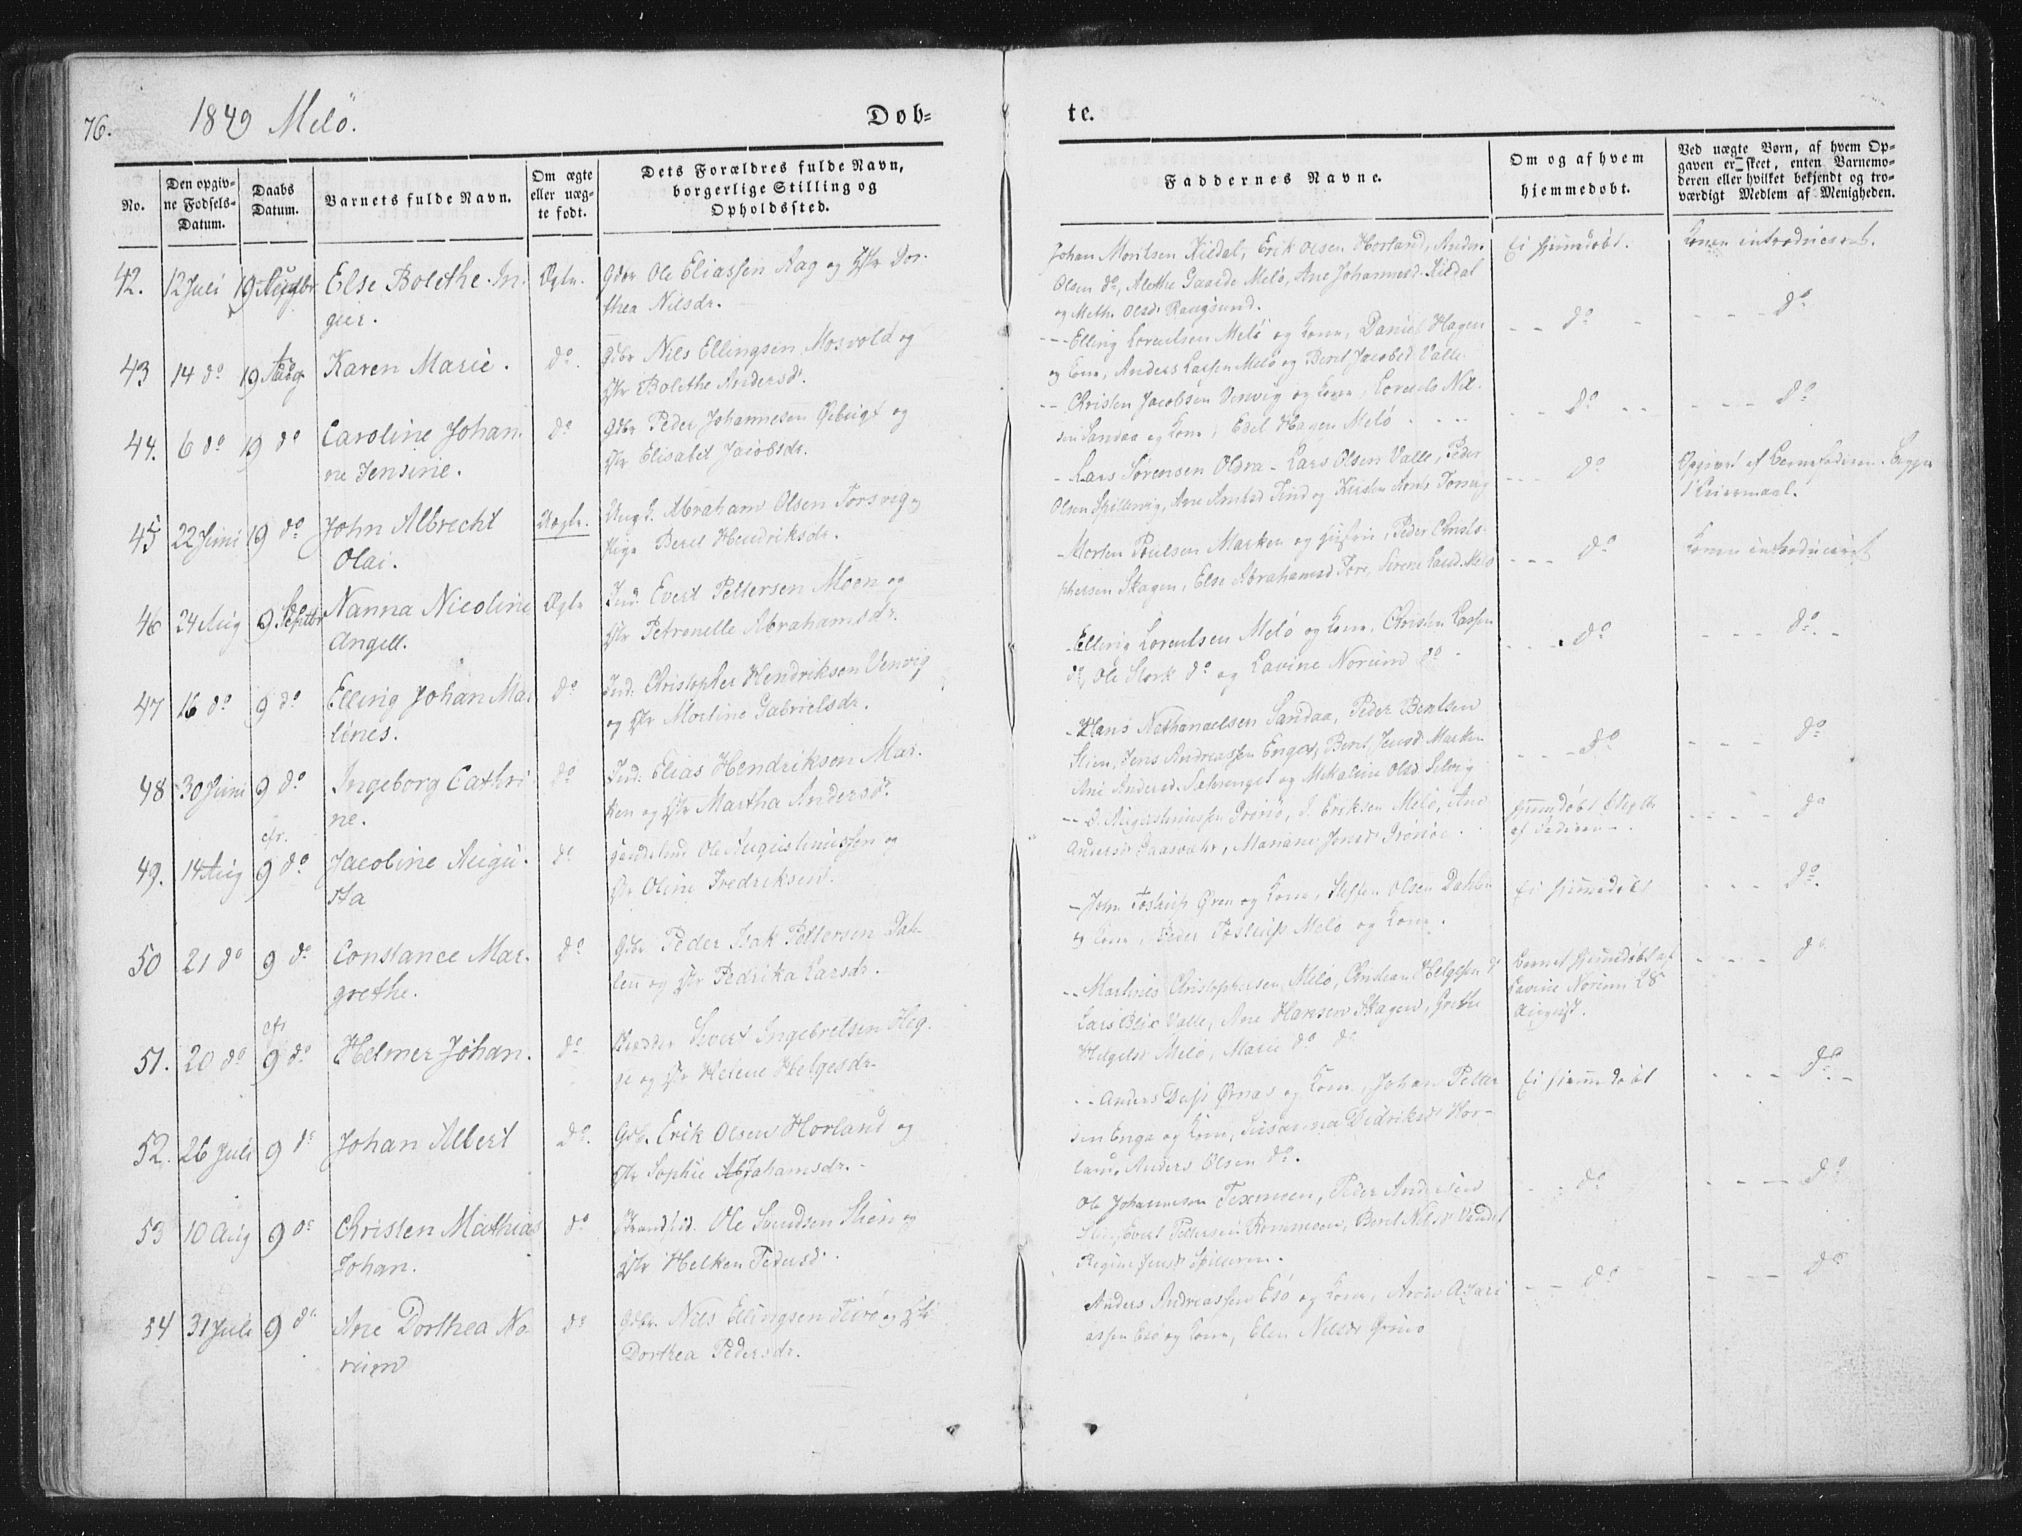 76. 1849 Melö. Dob-
te.
No.
Den opgiv-
ne Fodsels-
Datum.
Daabs
Datum.
Barnets fulde Navn.
Om ægte
eller uæg-
te født.
Dets Forældres fulde Navn,
borgerlige Stilling og
Opholdssted.
Faddernes Navne.
Om og af hvem
hjemmedobt.
Ved uægte Børn, af hvem Op-
gaven er skeet, enten Barnemo-
deren eller hvilket bekjendt og tro-
værdigt Medlem af Menigheden.
42. 12 Juli 19 Else Bolethe In- Ægte. Gdbr Ole Eliassen Aag og Pr Dor-
ger. thea Nilsdr.
Johan Moritsen Kildal, Erik Olsen Horland, Anders
Olsen do, Alethe Gaarde Melö, Ane Johannesd. Kildal
og Meth. Olsd. Rangsund.
Ei hjemdøbt. Konen introduceret.
43 14 do 19 Aug Karen Marie. do. Gdbr Nils Ellingsen Mosvold og
Pr Bolethe Andersd.
-- Elling Lorentsen Melö og Kone, Daniel Hagen
og Kone, Anders Larsen Melö og Berit Jacobsd. Valle.
-- do - - - - do
44. 6 do 19 do Caroline Johan- do Gdbr Peder Johannesen og
ne Jensine. Pr Elisabet Jacobsdr.
-- Christen Jacobsen Venvig og Kone, Lorents Nil-
sen Sandaa og Kone, Edel Hagen Melö
-- do -- - - - do
45 22 Juni 19 do John Albrecht Uægte. Ung K. Abraham Olsen Torsvig og
Olai. Pige Beret Hendriksdr.
- Lars Sörensen Oldra - Lars Olsen Valle, Peder
Olsen Spildervig, Ane Tind og Kirsten Torsvig
--- do Opgivet af Barnefaderen.
Leiermaal.
46 24 Aug 9 Septbr Nanna Nicoline Ægte Ind. Evert Pettersen Moen og
Angell. Pr Petronelle Abrahamsdr.
- Morten Poulsen Marken og Peder Christo-
phersen Skagen, Else Abrahamsd. Tore, Sirene Melö
--- do Konen introduceret
47 16 do 9 do Elling Johan Mar- do Ind: Christopher Hendriksen Venvig
tines. og Pr Martine Gabrielsdr.
- Elling Lorentsen Melö og Kone, Christen Larsen
do, Ole Stork do og Lavine Norum do -
--- do - - - do. -
48 30 Juni 9 do Ingeborg Cathri- do Ind: Elias Hendriksen Mar-
ne. ken og Pr Martha Andersd.
- Hans Nathanaelsen Sandaa, Peder Bentsen
Stien, Jens Andreassen Enget, Beret Jensd. Marken
Ane Andersd. og Mekaline Olsd. Selvig
- - - do - - - - do
49. 14 Aug cfr. 9 do Jacobine Augu- do Ole Augustinussen og
sta Pr Oline Fredriksen.
-- O. Augustinussen Grönö, J. Eriksen Melö, Ane
Andersd. Gaasvær, Mariane Jonsd. Grönöe.
hjemdøbt
af Faderen. - - - - do
50 21 do 9 do Constance Mar- do Gdbr Peder Isak Pettersen Dah-
grethe. len og Pr Fedrika Larsdr.
- John Tostrup Ören og Kone, Steffen Olsen Dahlen
og Kone, Peder Tostrup Melö og Kone.
Ei hjemmedøbt - - - do.
51. 20 do cfr 9 do Helmer Johan. do Sivert Ingebretsen Heg-
ge og Pr Helene Helgesdr.
-- Martines Christophersen Melö, Christian Helgesen do
Lars Blix Valle, Ane Hansen Skagen, Grethe
Helgesd. Melö, Marie do do
Barnet hjemdøbt af
Lavine Norum 28
August. - - - - do
52. 26 Juli 9 do Johan Albert do. Gdb. Erik Olsen Horland og
Pr Sophie Abrahamsdr.
-- Anders Dass Ørnæs og Kone, Johan Petter-
sen Enga og Kone, Susanna Didriksd. Hor-
land, Anders Olsen do.
Ei hjemmedøbt - - - do. -
53 10 Aug 9 do Christen Mathias do Strandsid. Ole Svendsen Stien og
Johan. Pr Helken Pedersd.
Ole Johannesen Texmoen, Peder Andersen
Stien, Evert Pettersen Rommoen, Beret Nilsd. Vandet
Regine Jensd. Spilderen.
- - do - - - - do
54 31 Juli 9 do Ane Dorthea No- do Gdbr. Nils Ellingsen Teröe og Pr
reim Dorthea Pedersdr.
Anders Andreassen Esö og Kone, Aron Azari
assen Esö og Kone, Elen Nilsdr Grönö
- - do - - - do